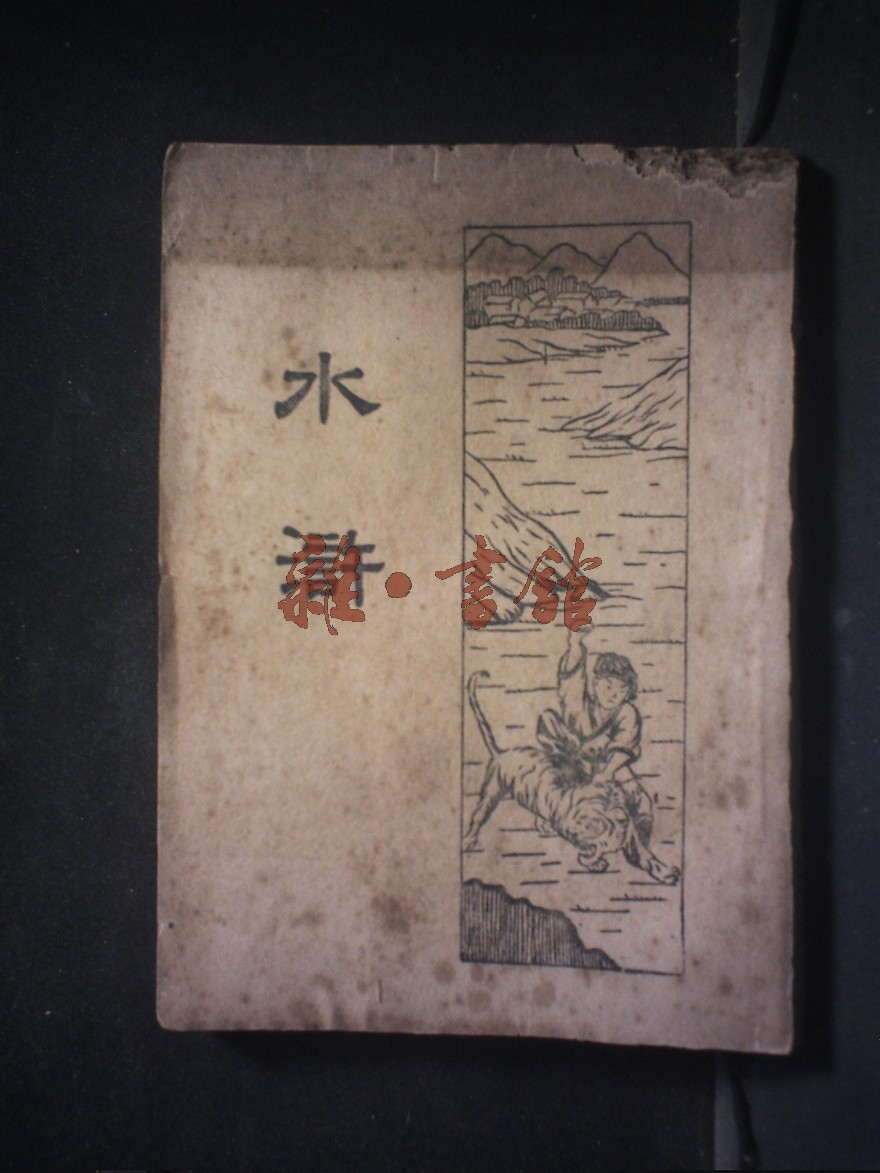 水
滸
雜·書館